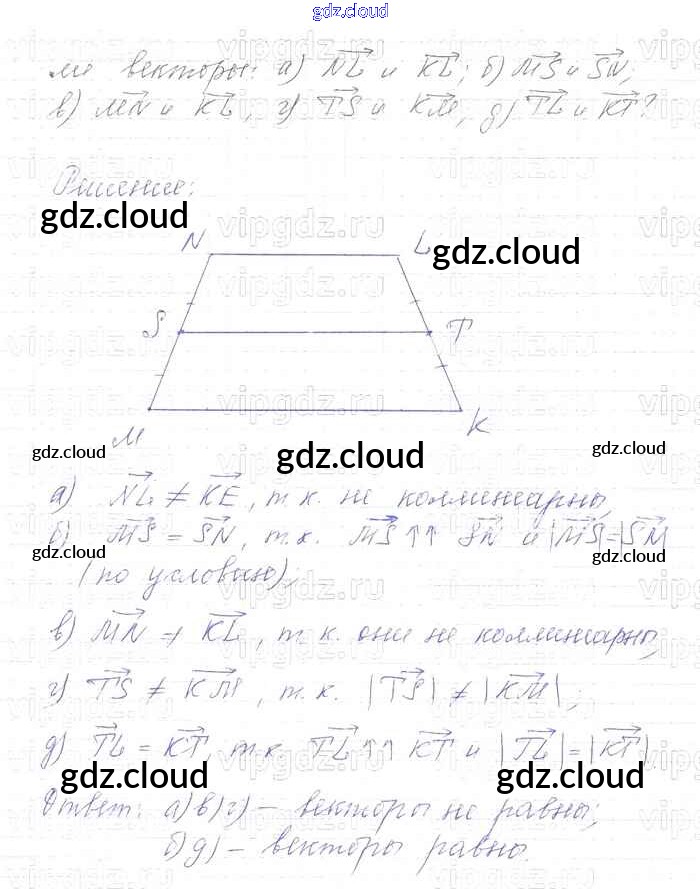 gdz.cloud
ли векторы: а) NL и KL; б) MS и SN;
в) MN и KL, г) TS и KM, д) TL и KT?
Решение:
gdz.cloud
N L gdz.cloud
S T
M K
gdz.cloud gdz.cloud gdz.cloud
а) NL ≠ KE, т.к. не коллинеарны,
б) MS = SN, т.к. MS ↑↑ SN и |MS|=|SN|
gdz.cloud gdz.cloud gdz.cloud
(по условию);
в) MN ≠ KL, т.к. они не коллинеарны,
г) TS ≠ KM, т.к. |TS| ≠ |KM|;
д) TL = KT, т.к. TL ↑↑ KT и |TL|=|KT|
gdz.cloud gdz.cloud
Ответ: а)в)г) – векторы не равны;
б)д) – векторы равны.